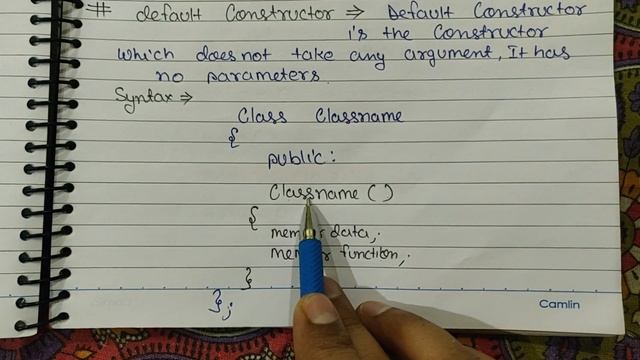 # default Constructor ⇒ Default Constructor
is the Constructor
which does not take any argument, It has
no parameters.
Syntax ⇒
Class Classname
{
public:
Classname ( )
{
member data;
member function;
}
};
Camlin